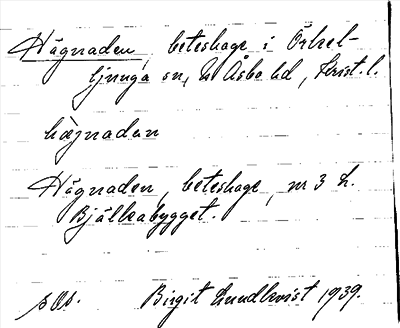 Hägnaden, beteshage i Örkel-
ljunga sn, N Åsbo hd, Krist. l.
hæjnadan
Hägnaden, beteshage, nr 3 h.
Bjälkabygget.
Birgit Lundkvist 1939.